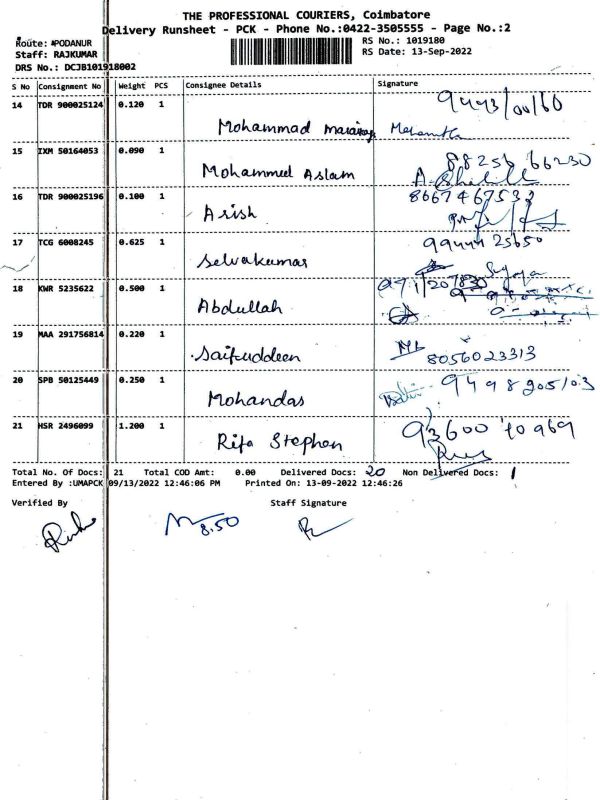 THE PROFESSIONAL COURIERS, Coimbatore
Delivery Runsheet - PCK - Phone No.:0422-3505555 - Page No.:2
Route: #PODANUR RS No.: 1019180
Staff: RAJKUMAR RS Date: 13-Sep-2022
DRS No.: DCJB101918002
S No Consignment No Weight PCS Consignee Details Signature
14 TDR 900025124 0.120 1
Mohammad
15 IXM 50164053 0.090 1 88256 66230
Mohammed Aslam
16 TDR 900025196 0.100 1 8667467533
Arish
17 TCG 6008245 0.625 1 99444 25650
Selvakumar
18 KWR 5235622 0.500 1
Abdullah
19 MAA 291756814 0.220 1
Saifuddeen 8056023313
20 SPB 50125449 0.250 1
Mohandas
21 HSR 2496099 1.200 1 93600 70969
Rifa Stephen
Total No. Of Docs: 21 Total COD Amt: 0.00 Delivered Docs: 20 Non Delivered Docs: 1
Entered By :UMAPCK 09/13/2022 12:46:06 PM Printed On: 13-09-2022 12:46:26
Verified By Staff Signature
8.50